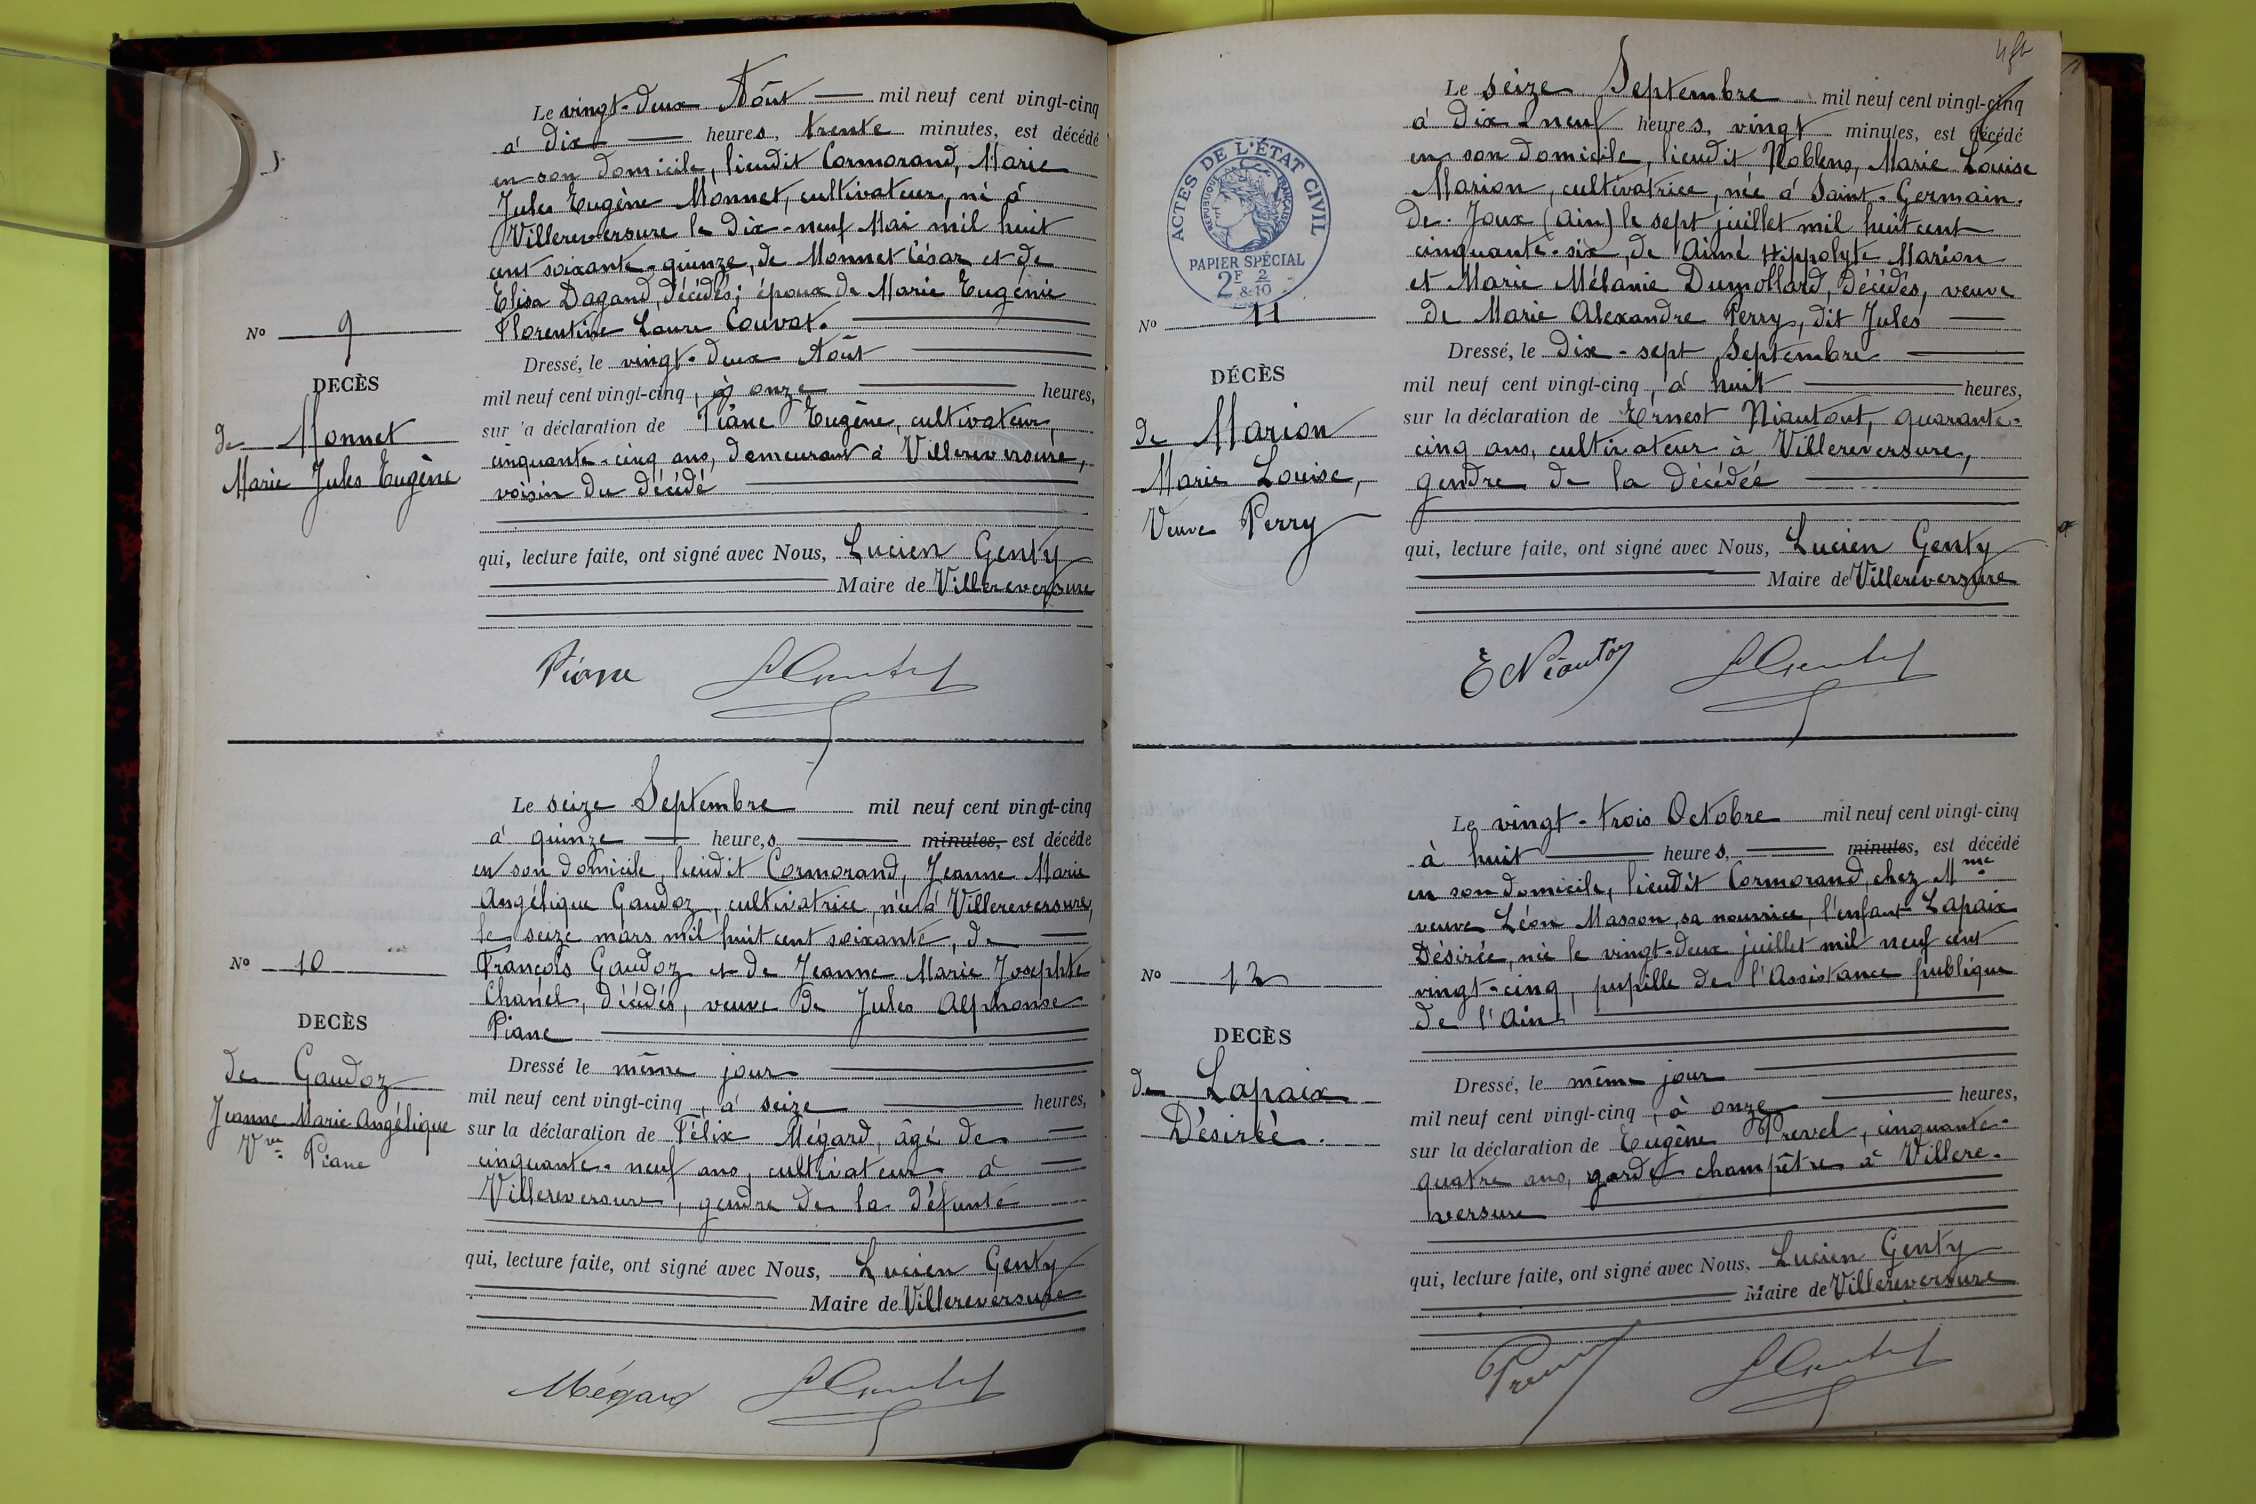 Le vingt-deux Août mil neuf cent vingt-cinq
à dix heures, trente minutes, est décédé
en son domicile, lieudit Cormorand, Marie
Jules Eugène Monnet, cultivateur, né à
Villereversure le dix-neuf Mai mil huit
cent soixante-quinze, de Monnet César et de
Elisa Dagand, décédés; époux de Marie Eugénie
Florentine Laure Couvat.
No 9
Dressé, le vingt-deux Août
DECÈS
mil neuf cent vingt-cinq, à onze heures,
de Monnet
Marie Jules Eugène
sur la déclaration de Piane Eugène, cultivateur,
cinquante-cinq ans, demeurant à Villereversure,
voisin du décédé
qui, lecture faite, ont signé avec Nous, Lucien Genty
Maire de Villereversure
Piane
Le seize Septembre mil neuf cent vingt-cinq
à quinze heure,s minutes, est décédé
en son domicile, lieudit Cormorand, Jeanne Marie
Angélique Gaudoz, cultivatrice, née à Villereversure,
le seize mars mil huit cent soixante, de
François Gaudoz et de Jeanne Marie Josephte
Chanel, décédés, veuve de Jules Alphonse
Piane
No 10
DECÈS
de Gaudoz
Jeanne Marie Angélique
Vve Piane
Dressé le même jour
mil neuf cent vingt-cinq, à seize heures,
sur la déclaration de Félix Mégard, âgé de
cinquante-neuf ans, cultivateur à
Villereversure, gendre de la défunte
qui, lecture faite, ont signé avec Nous, Lucien Genty
Maire de Villereversure
Mégard
ACTES DE L'ÉTAT CIVIL
RÉPUBLIQUE FRANÇAISE
PAPIER SPÉCIAL
2F & 2/10
Le seize Septembre mil neuf cent vingt-cinq
à dix-neuf heures, vingt minutes, est décédé
en son domicile, lieudit Noblens, Marie Louise
Marion, cultivatrice, née à Saint-Germain-
de-Joux (Ain) le sept juillet mil huit cent
cinquante-six, de Aimé Hippolyte Marion
et Marie Mélanie Dumollard, décédés, veuve
de Marie Alexandre Perry, dit Jules
No 11
DÉCÈS
de Marion
Marie Louise,
Veuve Perry
Dressé, le dix-sept Septembre
mil neuf cent vingt-cinq, à huit heures,
sur la déclaration de Ernest Niautout, quarante-
cinq ans, cultivateur à Villereversure,
gendre de la décédée
qui, lecture faite, ont signé avec Nous, Lucien Genty
Maire de Villereversure
Le vingt-trois Octobre mil neuf cent vingt-cinq
à huit heures, minutes, est décédé
en son domicile, lieudit Cormorand, chez Mme
veuve Léon Masson, sa nourrice, l'enfant Lapaix
Désirée, née le vingt-deux juillet mil neuf cent
vingt-cinq, pupille de l'Assistance publique
de l'Ain
No 12
DECÈS
de Lapaix
Désirée.
Dressé, le même jour
mil neuf cent vingt-cinq, à onze heures,
sur la déclaration de Eugène Prevel, cinquante-
quatre ans, garde champêtre à Villere-
versure
qui, lecture faite, ont signé avec Nous, Lucien Genty
Maire de Villereversure